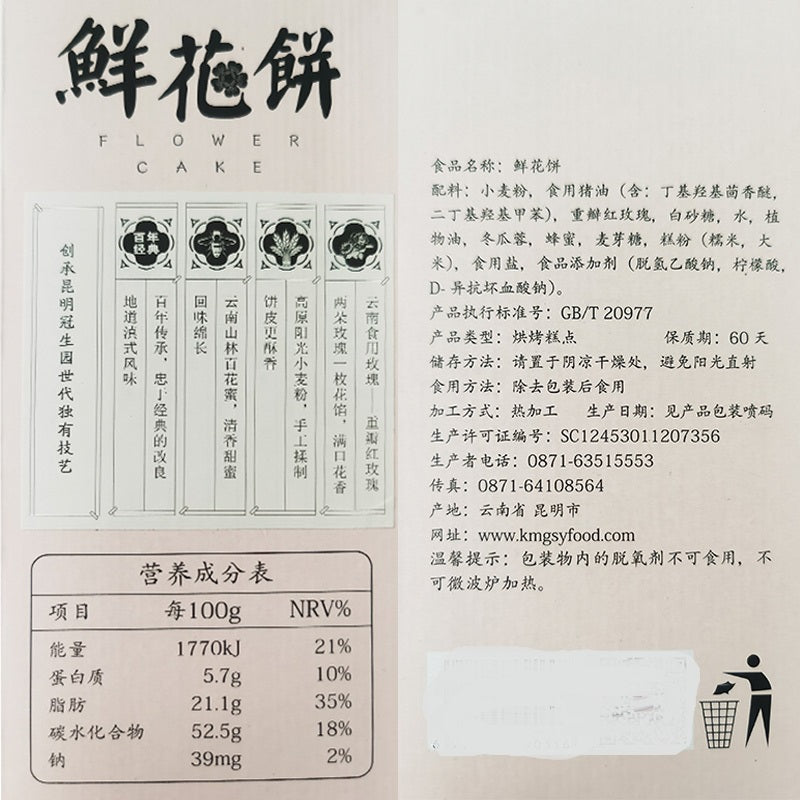 鮮花餅
FLOWER
CAKE
创承昆明冠生园世代独有技艺
百年
经典
百年传承，忠于经典的改良
地道滇式风味
云南山林百花蜜，清香甜蜜
回味绵长
高原阳光小麦粉，手工揉制
饼皮更酥香
云南食用玫瑰——重瓣红玫瑰
两朵玫瑰一枚花馅，满口花香
营养成分表
项目 每100g NRV%
能量 1770kJ 21%
蛋白质 5.7g 10%
脂肪 21.1g 35%
碳水化合物 52.5g 18%
钠 39mg 2%
食品名称：鲜花饼
配料：小麦粉，食用猪油（含：丁基羟基茴香醚，
二丁基羟基甲苯），重瓣红玫瑰，白砂糖，水，植
物油，冬瓜蓉，蜂蜜，麦芽糖，糕粉（糯米，大
米），食用盐，食品添加剂（脱氢乙酸钠，柠檬酸，
D- 异抗坏血酸钠）。
产品执行标准号：GB/T 20977
产品类型：烘烤糕点 保质期：60 天
储存方法：请置于阴凉干燥处，避免阳光直射
食用方法：除去包装后食用
加工方式：热加工 生产日期：见产品包装喷码
生产许可证编号：SC12453011207356
生产者电话：0871-63515553
传真：0871-64108564
产地：云南省 昆明市
网址：www.kmgsyfood.com
温馨提示：包装物内的脱氧剂不可食用，不
可微波炉加热。